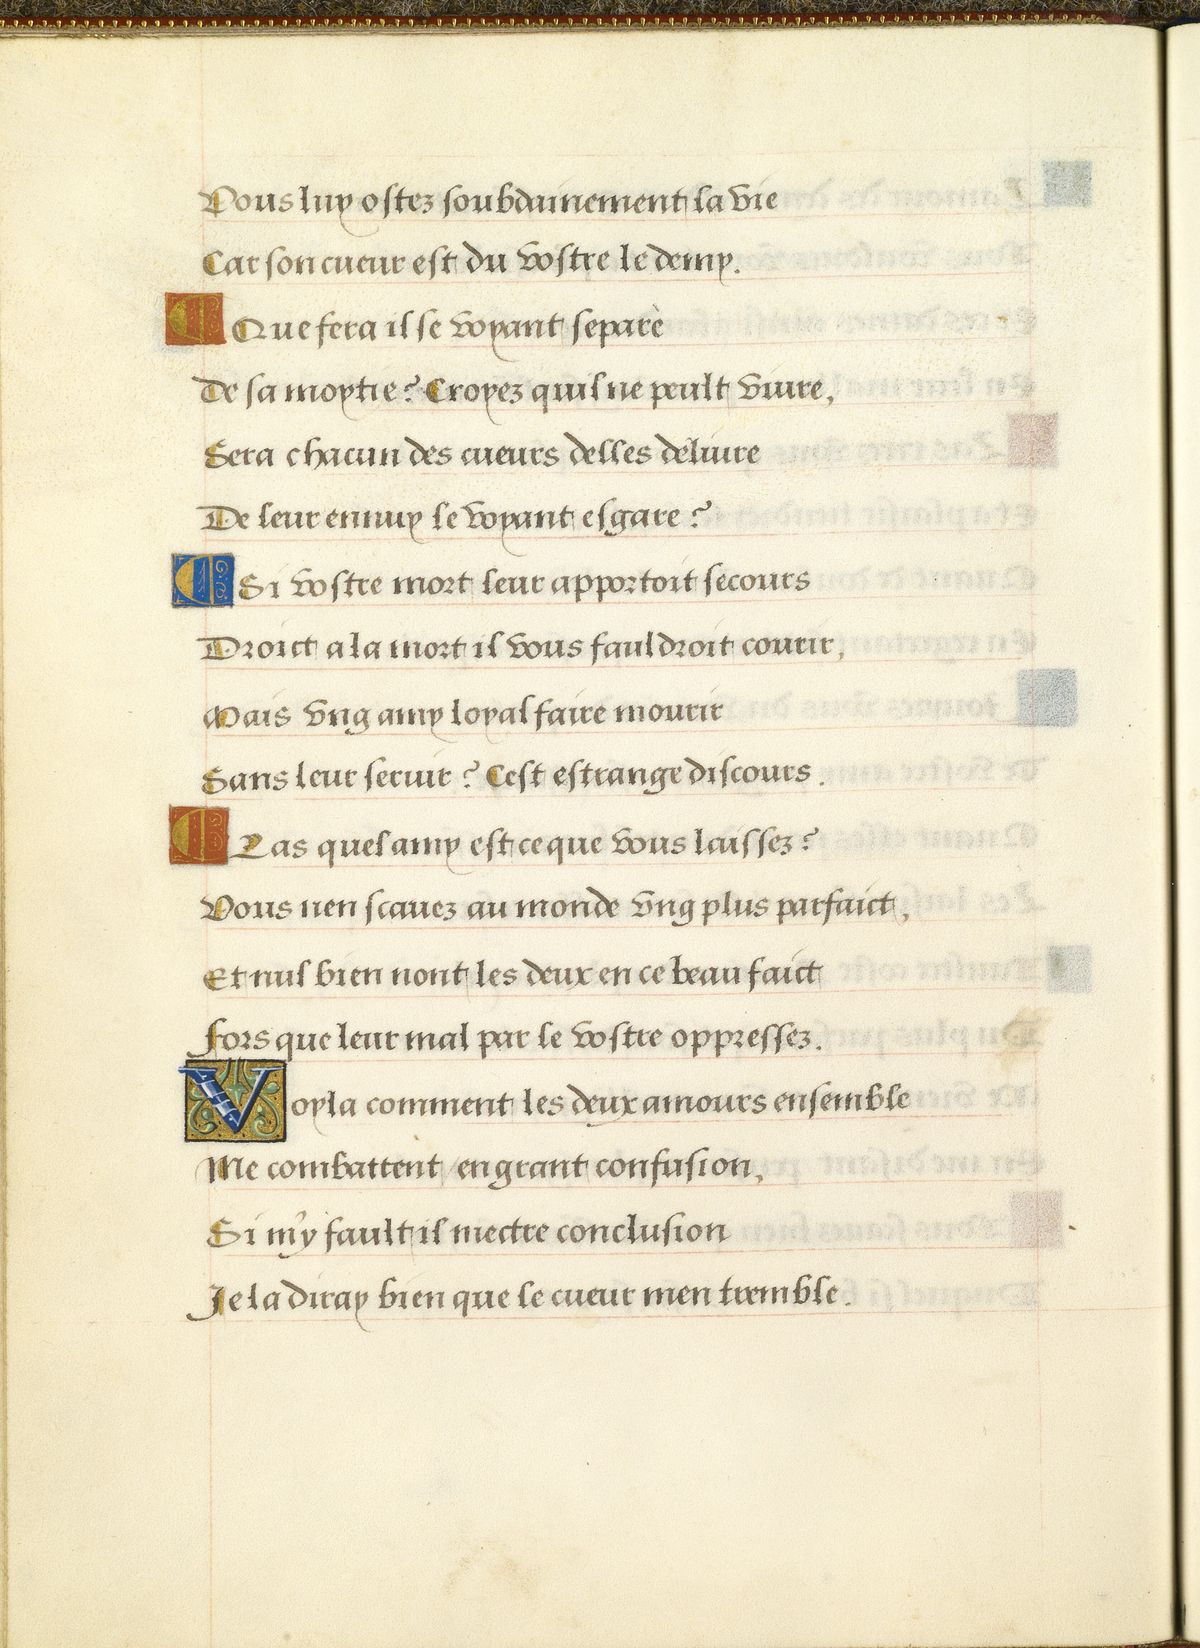 Vous luy ostez soubdainement la vie
Car son cueur est du vostre le demy.
Que fera il se voyant separé
De sa moytie? Croyez quil ne peult vivre,
Sera chacun des cueurs delles delivre
De leur ennuy le voyant esgare?
Si vostre mort leur apportoit secours
Droict a la mort il vous fauldroit courir,
Mais vng amy loyal faire mourir
Sans leur servir? Cest estrange discours.
Las quel amy est ce que vous laissez?
Vous nen scavez au monde vng plus parfaict,
Et nul bien nont les deux en ce beau faict
fors que leur mal par le vostre oppressez.
Voyla comment les deux amours ensemble
Me combattent en grant confusion,
Si m'y fault il mectre conclusion
Je la diray bien que le cueur men tremble.